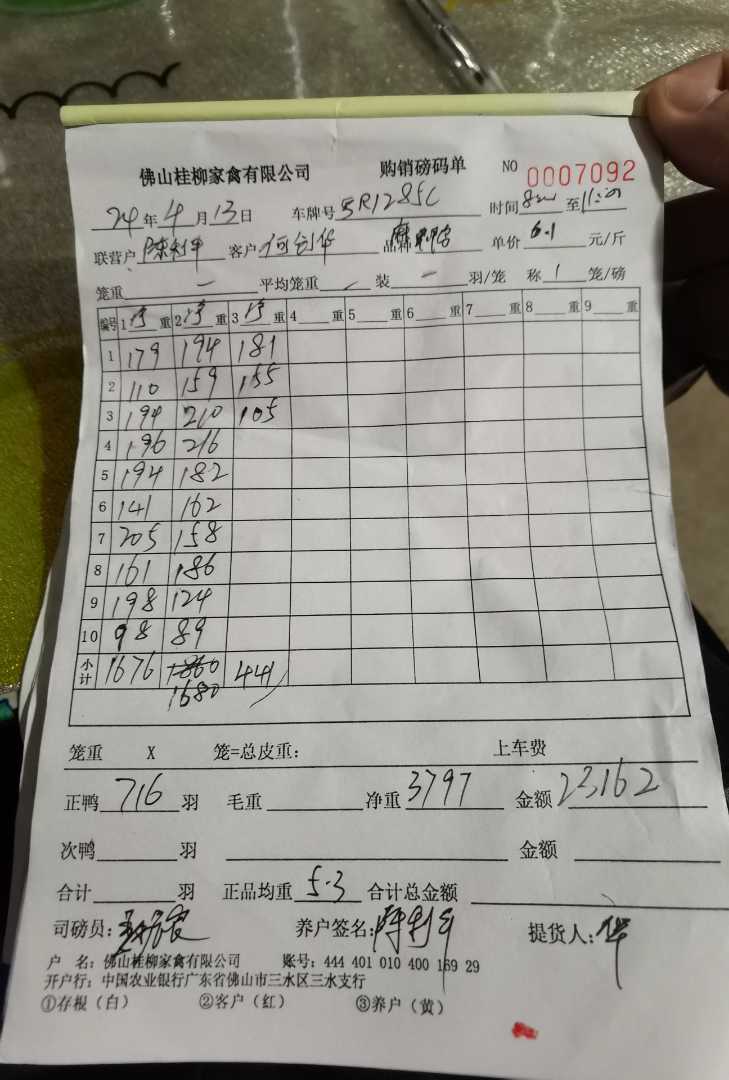 佛山桂柳家禽有限公司 购销磅码单 NO 0007092
24年4月13日 车牌号 5R1285C 时间 至
联营户 陈利平 客户 何剑华 品种 单价 6.1 元/斤
笼重 一 平均笼重 装 一 羽/笼 称 1 笼/磅
编号 1 净 重 2 净 重 3 净 重 4 重 5 重 6 重 7 重 8 重 9 重
1 179 194 181
2 110 159 155
3 194 210 105
4 196 216
5 194 182
6 141 162
7 205 158
8 161 186
9 198 124
10 98 89
小计 1676 1860 441
1680
笼重 X 笼=总皮重: 上车费
正鸭 716 羽 毛重 净重 3797 金额 23162
次鸭 羽 金额
合计 羽 正品均重 5.3 合计总金额
司磅员: 养户签名: 陈利平 提货人: 华
户 名: 佛山桂柳家禽有限公司 账号: 444 401 010 400 169 29
开户行: 中国农业银行广东省佛山市三水区三水支行
①存根(白) ②客户(红) ③养户(黄)